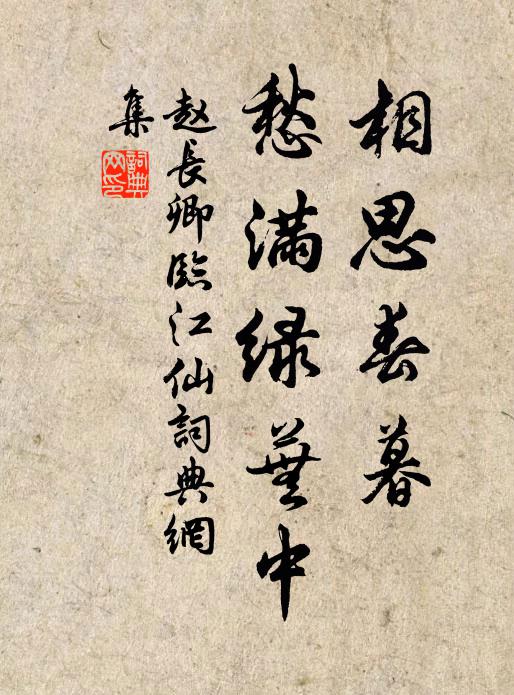 相思春暮
愁滿綠蕪中
赵長卿臨江仙詞典網
集
詞典網印